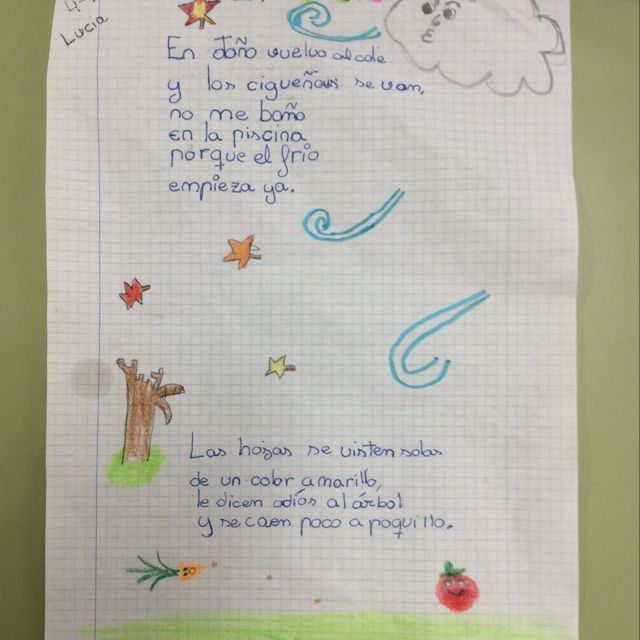 Lucia
En otoño vuelvo al cole
y las cigueñas se van,
no me baño
en la piscina
porque el frio
empieza ya.
Las hojas se visten solas
de un color amarillo,
le dicen adíos al árbol
y se caen poco a poquillo.